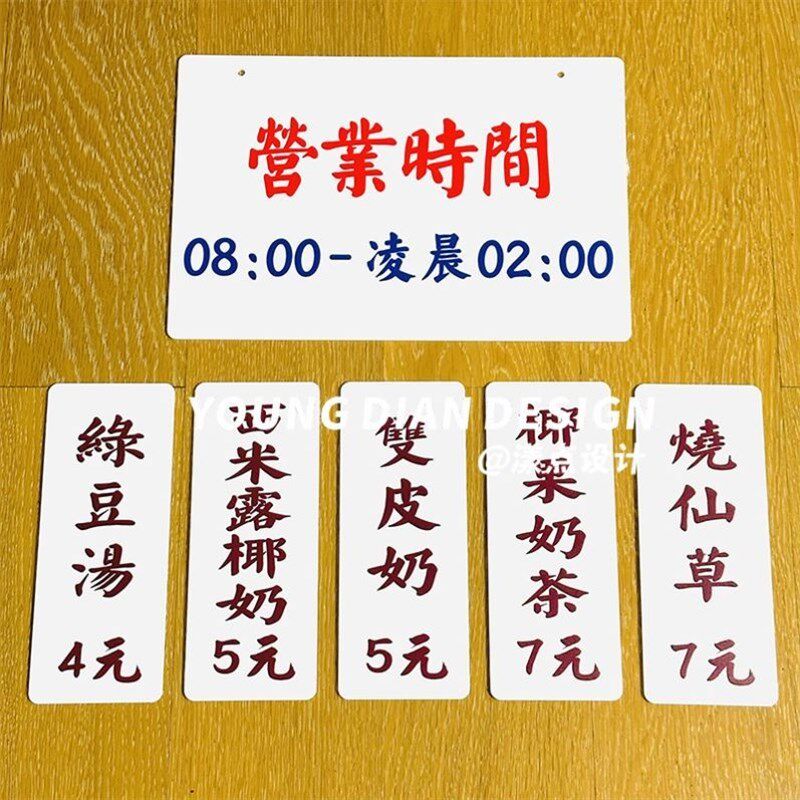 營業時間
08:00-凌晨02:00
綠豆湯
4元
西米露椰奶
5元
雙皮奶
5元
椰果奶茶
7元
燒仙草
7元
YOUNG DIAN DESIGN
@漾点设计